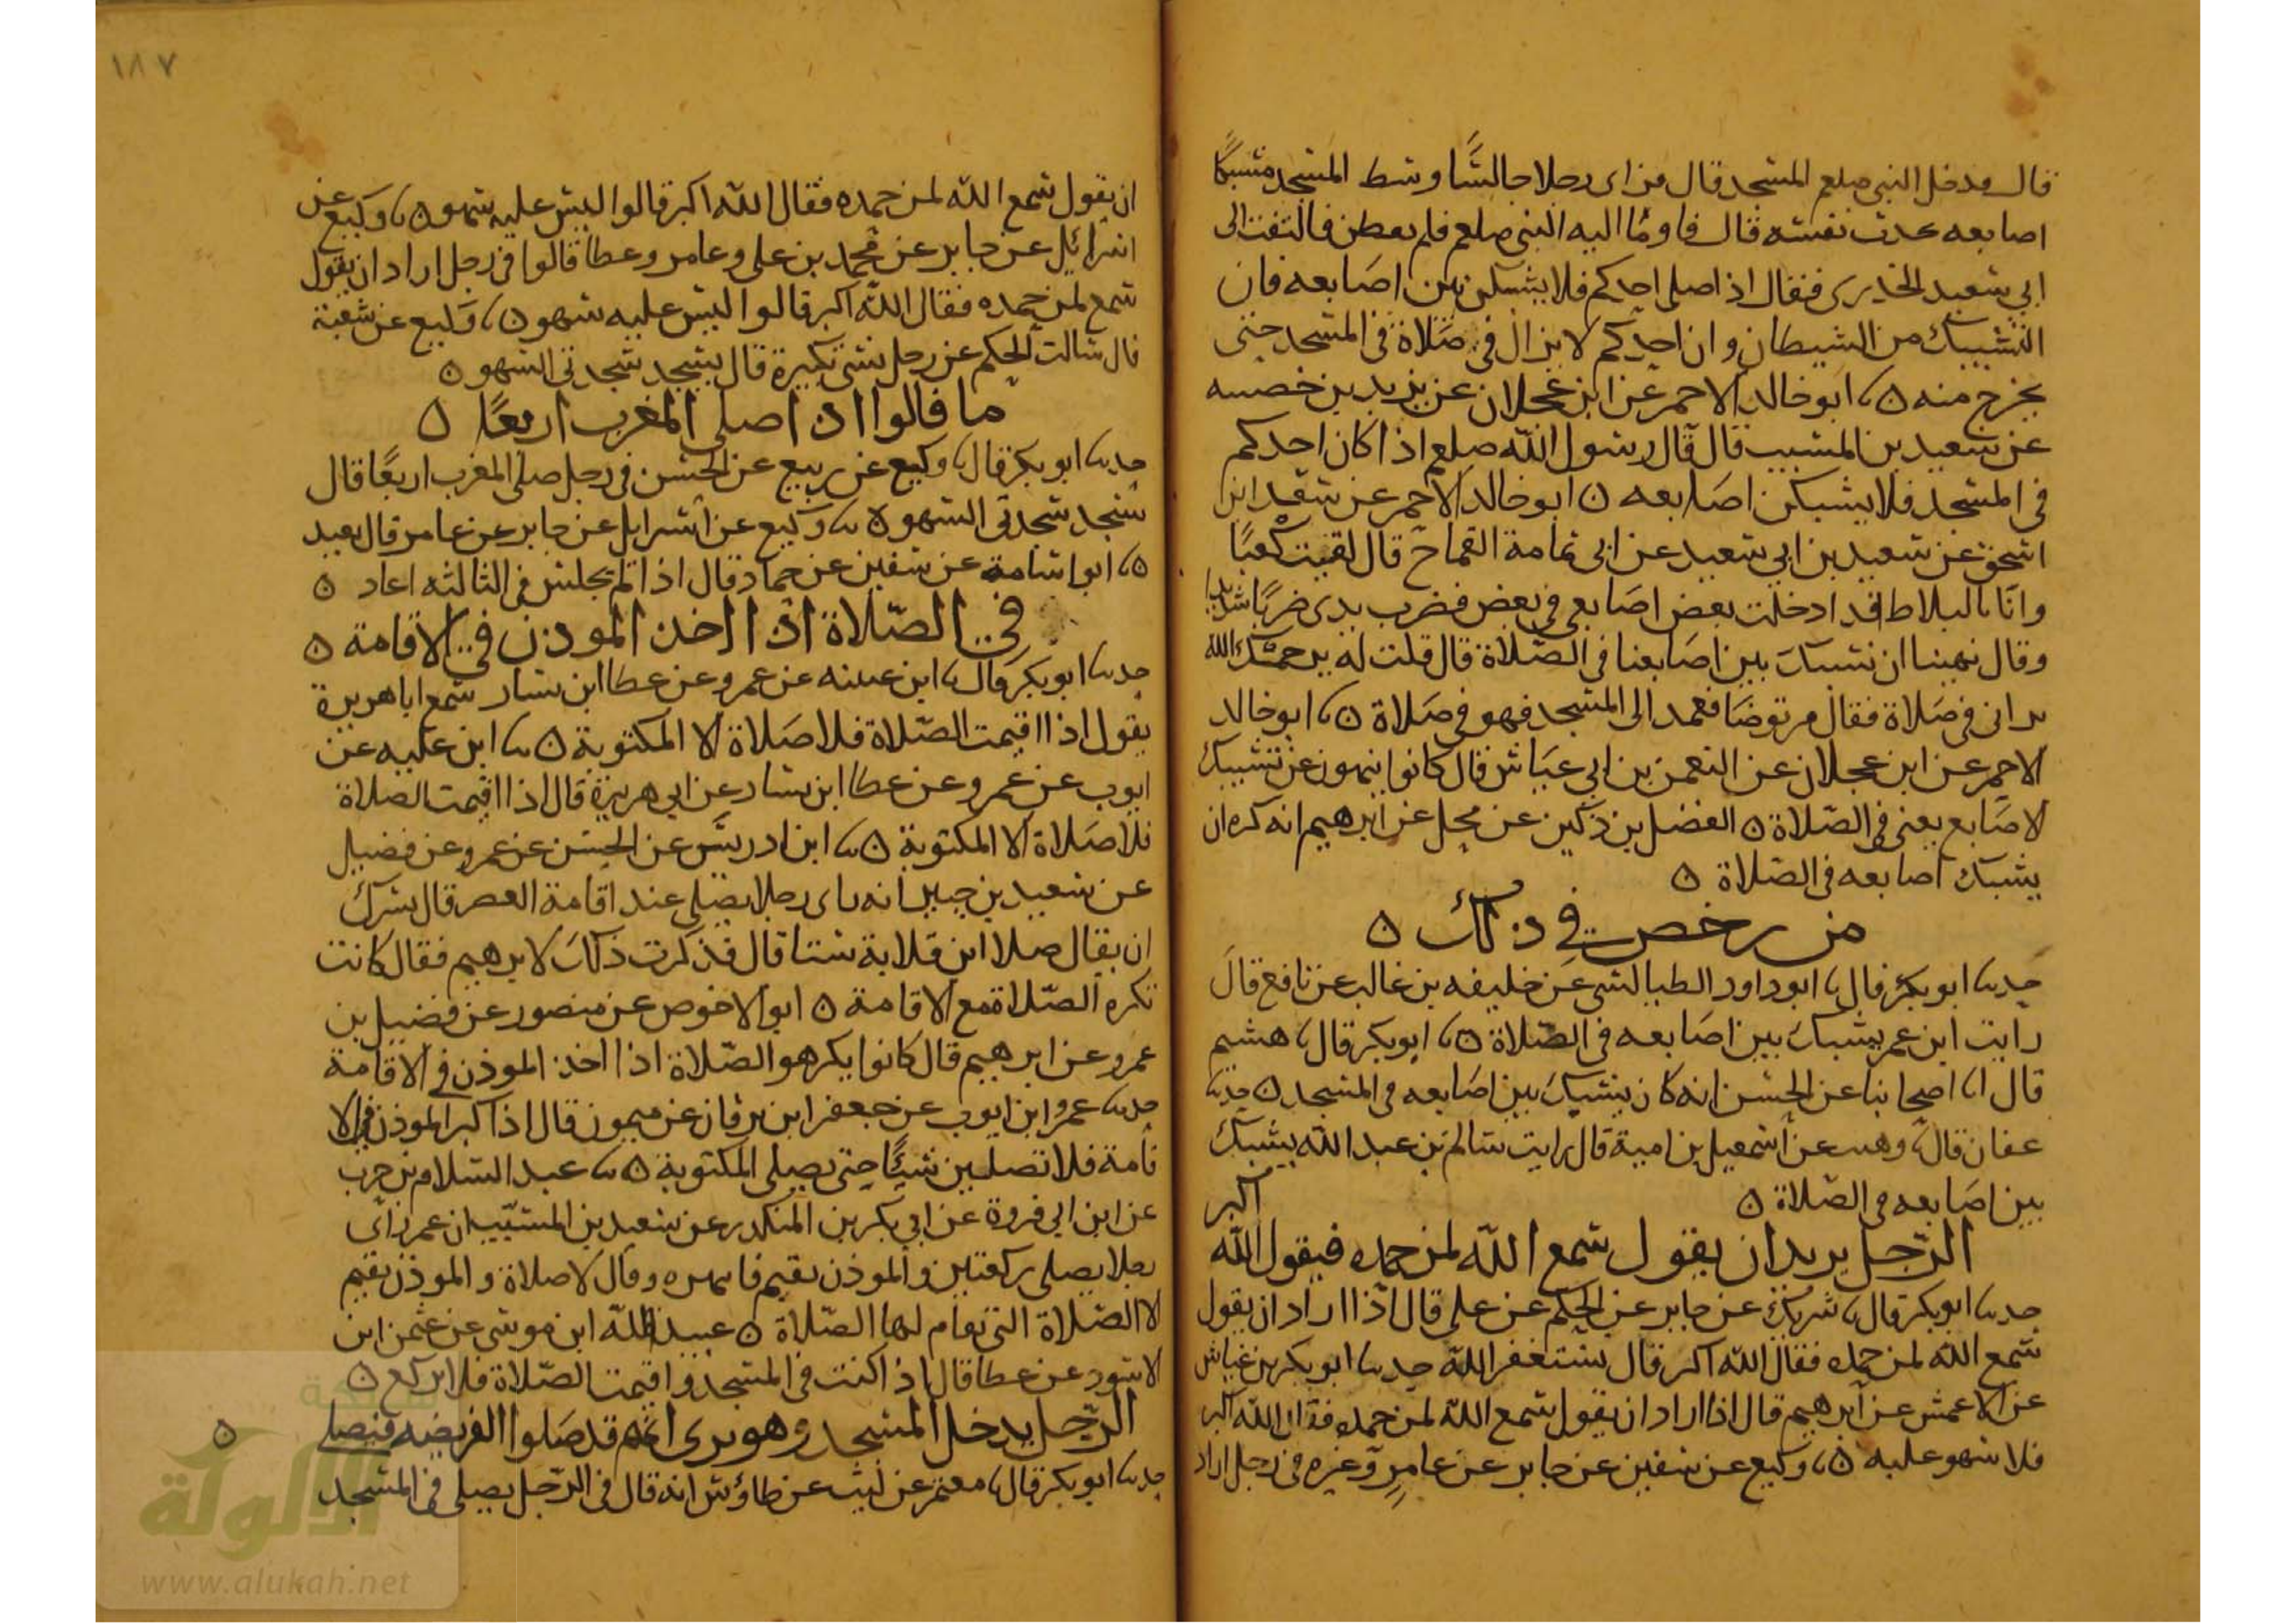 قال دخل النبي صلعم المسجد قال فراى رجلا جالسًا وسط المسجد مشبكًا
اصابعه يحدث نفسه قال فاومًا اليه النبي صلعم فلم يفطن فالتفت الى
ابي سعيد الخدري فقال اذا صلى احدكم فلا يشبكن بين اصابعه فان
التشبيك من الشيطان وان احدكم لا يزال في صلاة في المسجد حتى
يخرج منه ٥ ثنا ابو خالد الاحمر عن ابن عجلان عن يزيد بن خصيفه
عن سعيد بن المسيب قال قال رسول الله صلعم اذا كان احدكم
في المسجد فلا يشبكن اصابعه ٥ ابو خالد الاحمر عن سعد ابن
اسحق عن سعيد بن ابي سعيد عن ابي ثمامة القماح قال لقيت كعبًا
وانا بالبلاط قد ادخلت بعض اصابعي في بعض فضرب يدي ضربًا شديدا
وقال نهينا ان نشبك بين اصابعنا في الصّلاة قال قلت له يرحمك الله
تراني في صلاة فقال من توضا فعمد الى المسجد فهو في صلاة ٥ ثنا ابو خالد
الاحمر عن ابن عجلان عن النعمن بن ابي عياش قال كانوا ينهون عن تشبيك
الاصابع يعني في الصّلاة ٥ الفضل بن دكين عن محل عن ابرهيم انه كره ان
يشبك اصابعه في الصّلاة ٥
من رخص في ذلك ٥
حدثنا ابو بكر قال ثنا ابو داود الطيالسي عن خليفه بن غالب عن نافع قال
رايت ابن عمر يشبك بين اصابعه في الصّلاة ٥ ثنا ابو بكر قال ثنا هشيم
قال انا اصحابنا عن الحسن انه كان يشبك بين اصابعه في المسجد ٥ حدثنا
عفان قال ثنا وهيب عن اسمعيل بن امية قال رايت سالم بن عبد الله يشبك
بين اصابعه في الصّلاة ٥
الرّجل يريد ان يقول سمع الله لمن حمده فيقول الله اكبر
حدثنا ابو بكر قال ثنا شريك عن جابر عن الحكم عن علي قال اذا اراد ان يقول
سمع الله لمن حمده فقال الله اكبر قال يستغفر الله حدثنا ابو بكر بن عياش
عن الاعمش عن ابرهيم قال اذا اراد ان يقول سمع الله لمن حمده فقال الله اكبر
فلا سهو عليه ٥ ثنا وكيع عن سفين عن جابر عن عامر وغيره في رجل اراد
١٨٧
ان يقول سمع الله لمن حمده فقال الله اكبر قالوا ليس عليه سهو ٥ ثنا وكيع عن
اسرائيل عن جابر عن محمد بن علي وعامر وعطا قالوا في رجل اراد ان يقول
سمع لمن حمده فقال الله اكبر قالوا ليس عليه سهو ٥ ثنا وكيع عن شعبة
قال سالت الحكم عن رجل نسي تكبيرة قال يسجد سجدتي السهو ٥
ما قالوا اذا صلى المغرب اربعًا ٥
حدثنا ابو بكر قال ثنا وكيع عن ربيع عن الحسن في رجل صلى المغرب اربعًا قال
يسجد سجدتي السهو ٥ ثنا وكيع عن اسرايل عن جابر عن عامر قال يعيد
٥ ثنا ابو اسامة عن سفين عن حماد قال اذا لم يجلس في الثالثه اعاد ٥
في الصّلاة اذا اخذ الموذن في الاقامة ٥
حدثنا ابو بكر قال ثنا ابن عيينه عن عمرو عن عطا ابن يسار سمع ابا هريرة
يقول اذا اقيمت الصّلاة فلا صلاة الا المكتوبة ٥ ثنا ابن عليه عن
ايوب عن عمرو عن عطا ابن يسار عن ابي هريرة قال اذا اقيمت الصلاة
فلا صلاة الا المكتوبة ٥ ثنا ابن ادريس عن الحسن عن عمرو عن فضيل
عن سعيد بن جبير انه راى رجلا يصلي عند اقامة العصر قال يسرك
ان يقال صلا ابن فلابة ستا قال فذكرت ذلك لابرهيم فقال كانت
تكره الصّلاة مع الاقامة ٥ ابو الاحوص عن منصور عن فضيل بن
عمرو عن ابرهيم قال كانوا يكرهوا الصّلاة اذا اخذ الموذن في الاقامة
حدثنا عمرو ابن ايوب عن جعفر ابن برقان عن ميمون قال اذا كبر الموذن في الا
قامة فلا تصلين شيئًا حتى يصلي المكتوبة ٥ ثنا عبد السّلام بن حرب
عن ابن ابي فروة عن ابي بكر بن المنكدر عن سعيد بن المسيّب ان عمر راى
رجلا يصلي ركعتين والموذن يقيم فانتهره وقال لا صلاة والموذن يقيم
الا الصّلاة التي تقام لها الصّلاة ٥ عبيد الله ابن موسى عن عثمن ابن
الاسود عن عطا قال اذا كنت في المسجد واقيمت الصّلاة فلا تركع ٥
الرّجل يدخل المسجد وهو يرى انهم قد صلوا الفريضه فيصلي ٥
حدثنا ابو بكر قال ثنا معتمر عن ليث عن طاؤس انه قال في الرّجل يصلي في المسجد
شبكة
الألوكة
www.alukah.net